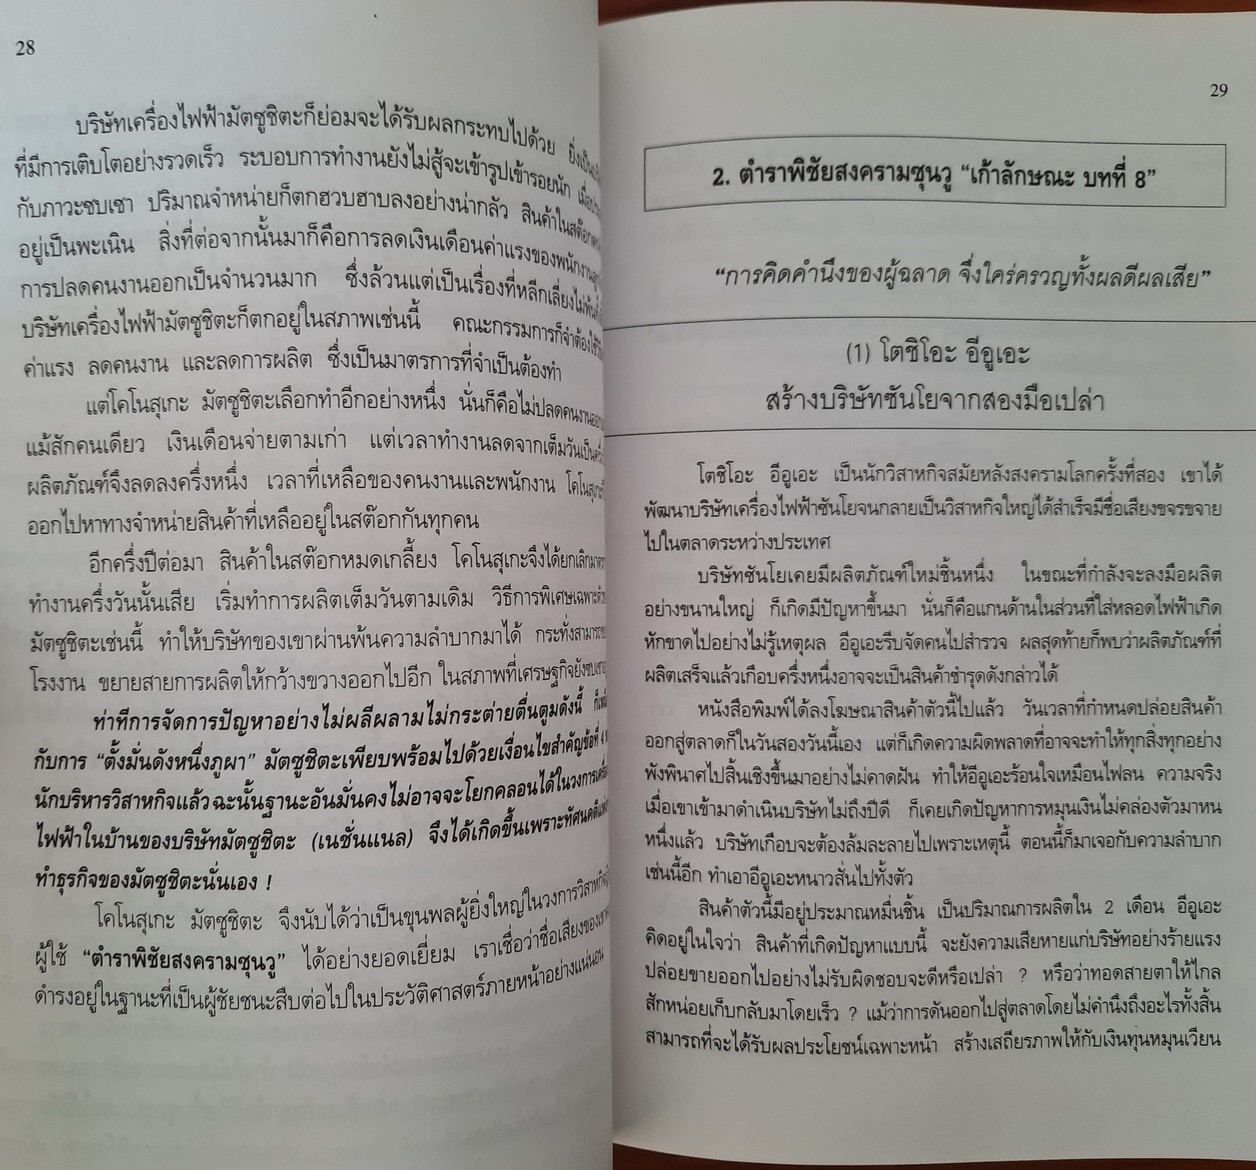 28
บริษัทเครื่องไฟฟ้ามัตซูชิตะก็ย่อมจะได้รับผลกระทบไปด้วย
ที่มีการเติบโตอย่างรวดเร็ว ระบอบการทำงานยังไม่สู้จะเข้ารูปเข้ารอยนัก
กับภาวะซบเซา ปริมาณจำหน่ายก็ตกฮวบฮาบลงอย่างน่ากลัว สินค้าในสต๊อก
อยู่เป็นพะเนิน สิ่งที่ต่อจากนั้นมาก็คือการลดเงินเดือนค่าแรงของพนักงาน
การปลดคนงานออกเป็นจำนวนมาก ซึ่งล้วนแต่เป็นเรื่องที่หลีกเลี่ยงไม่พ้น
บริษัทเครื่องไฟฟ้ามัตซูชิตะก็ตกอยู่ในสภาพเช่นนี้ คณะกรรมการก็จำต้อง
ค่าแรง ลดคนงาน และลดการผลิต ซึ่งเป็นมาตรการที่จำเป็นต้องทำ
แต่โคโนสุเกะ มัตซูชิตะเลือกทำอีกอย่างหนึ่ง นั่นก็คือไม่ปลดคนงาน
แม้สักคนเดียว เงินเดือนจ่ายตามเก่า แต่เวลาทำงานลดจากเต็มวันเป็น
ผลิตภัณฑ์จึงลดลงครึ่งหนึ่ง เวลาที่เหลือของคนงานและพนักงาน โคโนสุเกะ
ออกไปหาทางจำหน่ายสินค้าที่เหลืออยู่ในสต๊อกกันทุกคน
อีกครึ่งปีต่อมา สินค้าในสต๊อกหมดเกลี้ยง โคโนสุเกะจึงได้ยกเลิก
ทำงานครึ่งวันนั้นเสีย เริ่มทำการผลิตเต็มวันตามเดิม วิธีการพิเศษเฉพาะ
มัตซูชิตะเช่นนี้ ทำให้บริษัทของเขาผ่านพ้นความลำบากมาได้ กระทั่งสามารถ
โรงงาน ขยายสายการผลิตให้กว้างขวางออกไปอีก ในสภาพที่เศรษฐกิจยัง
ท่าทีการจัดการปัญหาอย่างไม่ผลีผลามไม่กระต่ายตื่นตูมดังนี้
กับการ “ตั้งมั่นดังหนึ่งภูผา” มัตซูชิตะเพียบพร้อมไปด้วยเงื่อนไขสำคัญข้อที่ 4
นักบริหารวิสาหกิจแล้ว ฉะนั้นฐานะอันมั่นคงไม่อาจจะโยกคลอนได้ในวงการ
ไฟฟ้าในบ้านของบริษัทมัตซูชิตะ (เนชั่นแนล) จึงได้เกิดขึ้นเพราะทัศนคติ
ทำธุรกิจของมัตซูชิตะนั่นเอง !
โคโนสุเกะ มัตซูชิตะ จึงนับได้ว่าเป็นขุนพลผู้ยิ่งใหญ่ในวงการวิสาหกิจ
ผู้ใช้ “ตำราพิชัยสงครามซุนวู” ได้อย่างยอดเยี่ยม เราเชื่อว่าชื่อเสียงของเขา
ดำรงอยู่ในฐานะที่เป็นผู้ชัยชนะสืบต่อไปในประวัติศาสตร์ภายหน้าอย่างแน่นอน
29
2. ตำราพิชัยสงครามซุนวู “เก้าลักษณะ บทที่ 8”
“การคิดคำนึงของผู้ฉลาด จึงใคร่ครวญทั้งผลดีผลเสีย”
(1) โตชิโอะ อีอูเอะ
สร้างบริษัทซันโยจากสองมือเปล่า
โตชิโอะ อีอูเอะ เป็นนักวิสาหกิจสมัยหลังสงครามโลกครั้งที่สอง เขาได้
พัฒนาบริษัทเครื่องไฟฟ้าซันโยจนกลายเป็นวิสาหกิจใหญ่ได้สำเร็จมีชื่อเสียงขจรขจาย
ไปในตลาดระหว่างประเทศ
บริษัทซันโยเคยมีผลิตภัณฑ์ใหม่ชิ้นหนึ่ง ในขณะที่กำลังจะลงมือผลิต
อย่างขนานใหญ่ ก็เกิดมีปัญหาขึ้นมา นั่นก็คือแกนด้านในส่วนที่ใส่หลอดไฟฟ้าเกิด
หักขาดไปอย่างไม่รู้เหตุผล อีอูเอะรีบจัดคนไปสำรวจ ผลสุดท้ายก็พบว่าผลิตภัณฑ์ที่
ผลิตเสร็จแล้วเกือบครึ่งหนึ่งอาจจะเป็นสินค้าชำรุดดังกล่าวได้
หนังสือพิมพ์ได้ลงโฆษณาสินค้าตัวนี้ไปแล้ว วันเวลาที่กำหนดปล่อยสินค้า
ออกสู่ตลาดก็ในวันสองวันนี้เอง แต่ก็เกิดความผิดพลาดที่อาจจะทำให้ทุกสิ่งทุกอย่าง
พังพินาศไปสิ้นเชิงขึ้นมาอย่างไม่คาดฝัน ทำให้อีอูเอะร้อนใจเหมือนไฟลน ความจริง
เมื่อเขาเข้ามาดำเนินบริษัทไม่ถึงปีดี ก็เคยเกิดปัญหาการหมุนเงินไม่คล่องตัวมาหน
หนึ่งแล้ว บริษัทเกือบจะต้องล้มละลายไปเพราะเหตุนี้ ตอนนี้ก็มาเจอกับความลำบาก
เช่นนี้อีก ทำเอาอีอูเอะหนาวสั่นไปทั้งตัว
สินค้าตัวนี้มีอยู่ประมาณหมื่นชิ้น เป็นปริมาณการผลิตใน 2 เดือน อีอูเอะ
คิดอยู่ในใจว่า สินค้าที่เกิดปัญหาแบบนี้ จะยังความเสียหายแก่บริษัทอย่างร้ายแรง
ปล่อยขายออกไปอย่างไม่รับผิดชอบจะดีหรือเปล่า ? หรือว่าทอดสายตาให้ไกล
สักหน่อยเก็บกลับมาโดยเร็ว ? แม้ว่าการดันออกไปสู่ตลาดโดยไม่คำนึงถึงอะไรทั้งสิ้น
สามารถที่จะได้รับผลประโยชน์เฉพาะหน้า สร้างเสถียรภาพให้กับเงินทุนหมุนเวียน